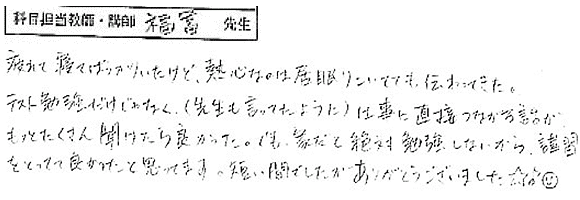 科目担当教師・講師 福富 先生
疲れて寝てばっかりいたけど、熱心なのは居眠りこいてても伝わってきた。
テスト勉強だけじゃなく、(先生も言ってたように)仕事に直接つながる話が
もっとたくさん聞けたら良かった。でも、家だと絶対勉強しないから、講習
をとってて良かったと思ってます。短い間でしたがありがとうございました